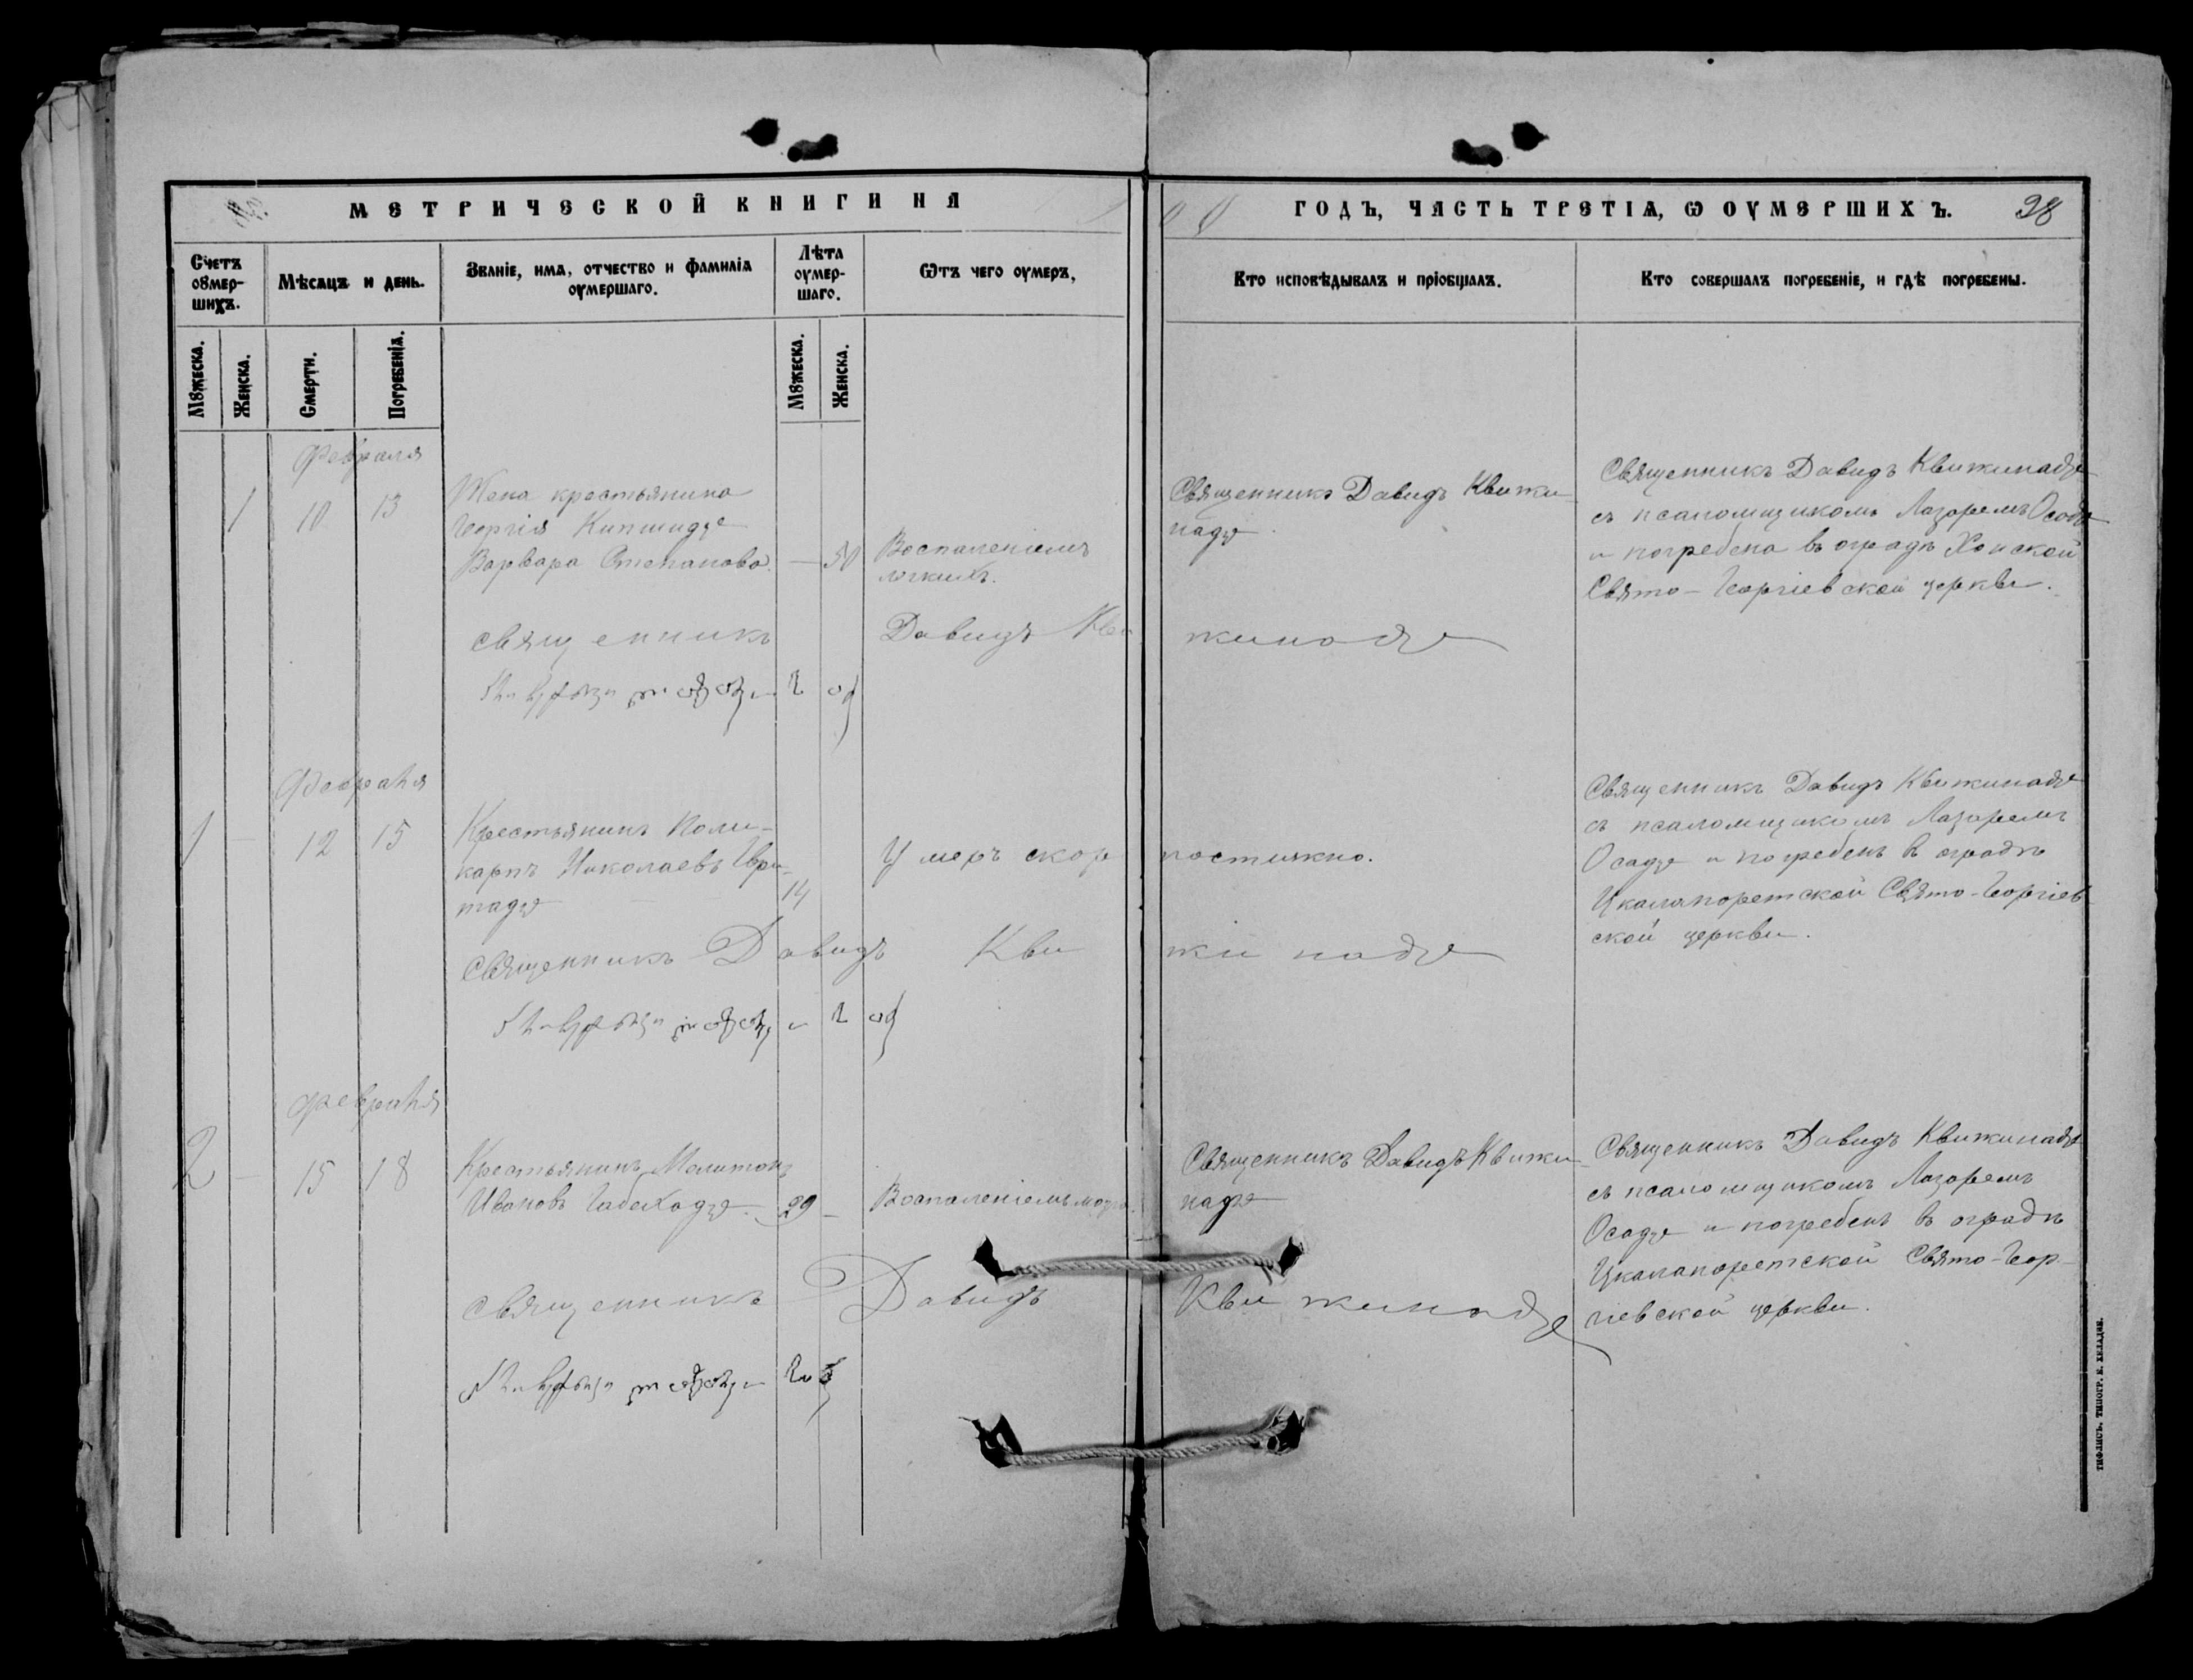 МЕТРИЧЕСКОЙ КНИГИ НА
ГОДЪ, ЧАСТЬ ТРЕТІѦ, Ѡ ОУМЕРШИХЪ.
98
Счетъ оумершихъ.
Мѣсѧцъ и день.
Званіе, имѧ, отчество и фамиліѧ оумершаго.
Лѣта оумершаго.
Ѿтъ чего оумеръ.
Кто исповѣдывалъ и пріобщалъ.
Кто совершалъ погребеніе, и гдѣ погребены.
Мꙋжеска.
Женска.
Смерти.
Погребеніѧ.
Мꙋжеска.
Женска.
Февраля
1
10
13
Жена крестьянина
Георгія Кипшидзе
Варвара Степанова.
— 50
Воспаленіемъ
легкихъ.
Священникъ Давидъ Квижи-
надзе.
Священникъ Давидъ Квижинадзе
съ псаломщикомъ Лазаремъ Осадзе
и погребена въ оградѣ Хонской
Свято-Георгіевской церкви.
Священникъ Давидъ Квижинадзе
Февраля
1 —
12
15
Крестьянинъ Поли-
карпъ Николаевъ
14
Умеръ скоропостижно.
Священникъ Давидъ Квижинадзе
съ псаломщикомъ Лазаремъ
Осадзе и погребенъ въ оградѣ
Цкалапоретской Свято-Георгіев
ской церкви.
Священникъ Давидъ Квижинадзе
Февраля
2 —
15
18
Крестьянинъ Мелитонъ
Ивановъ
29 —
Воспаленіемъ мозга.
Священникъ Давидъ Квижи-
надзе
Священникъ Давидъ Квижинадзе
съ псаломщикомъ Лазаремъ
Осадзе и погребенъ въ оградѣ
Цкалапоретской Свято-Геор-
гіевской церкви.
Священникъ Давидъ Квижинадзе
ТИФЛИСЪ. ТИПОГР. Е. ХЕЛАДЗЕ.